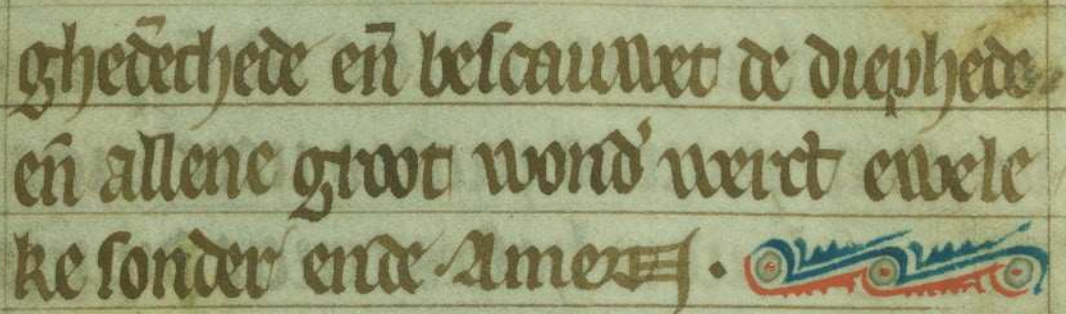 ghedēchede en̄ bescauwet de diephede
en̄ allene groot wond' werct ewele
ke sonder ende Amen .